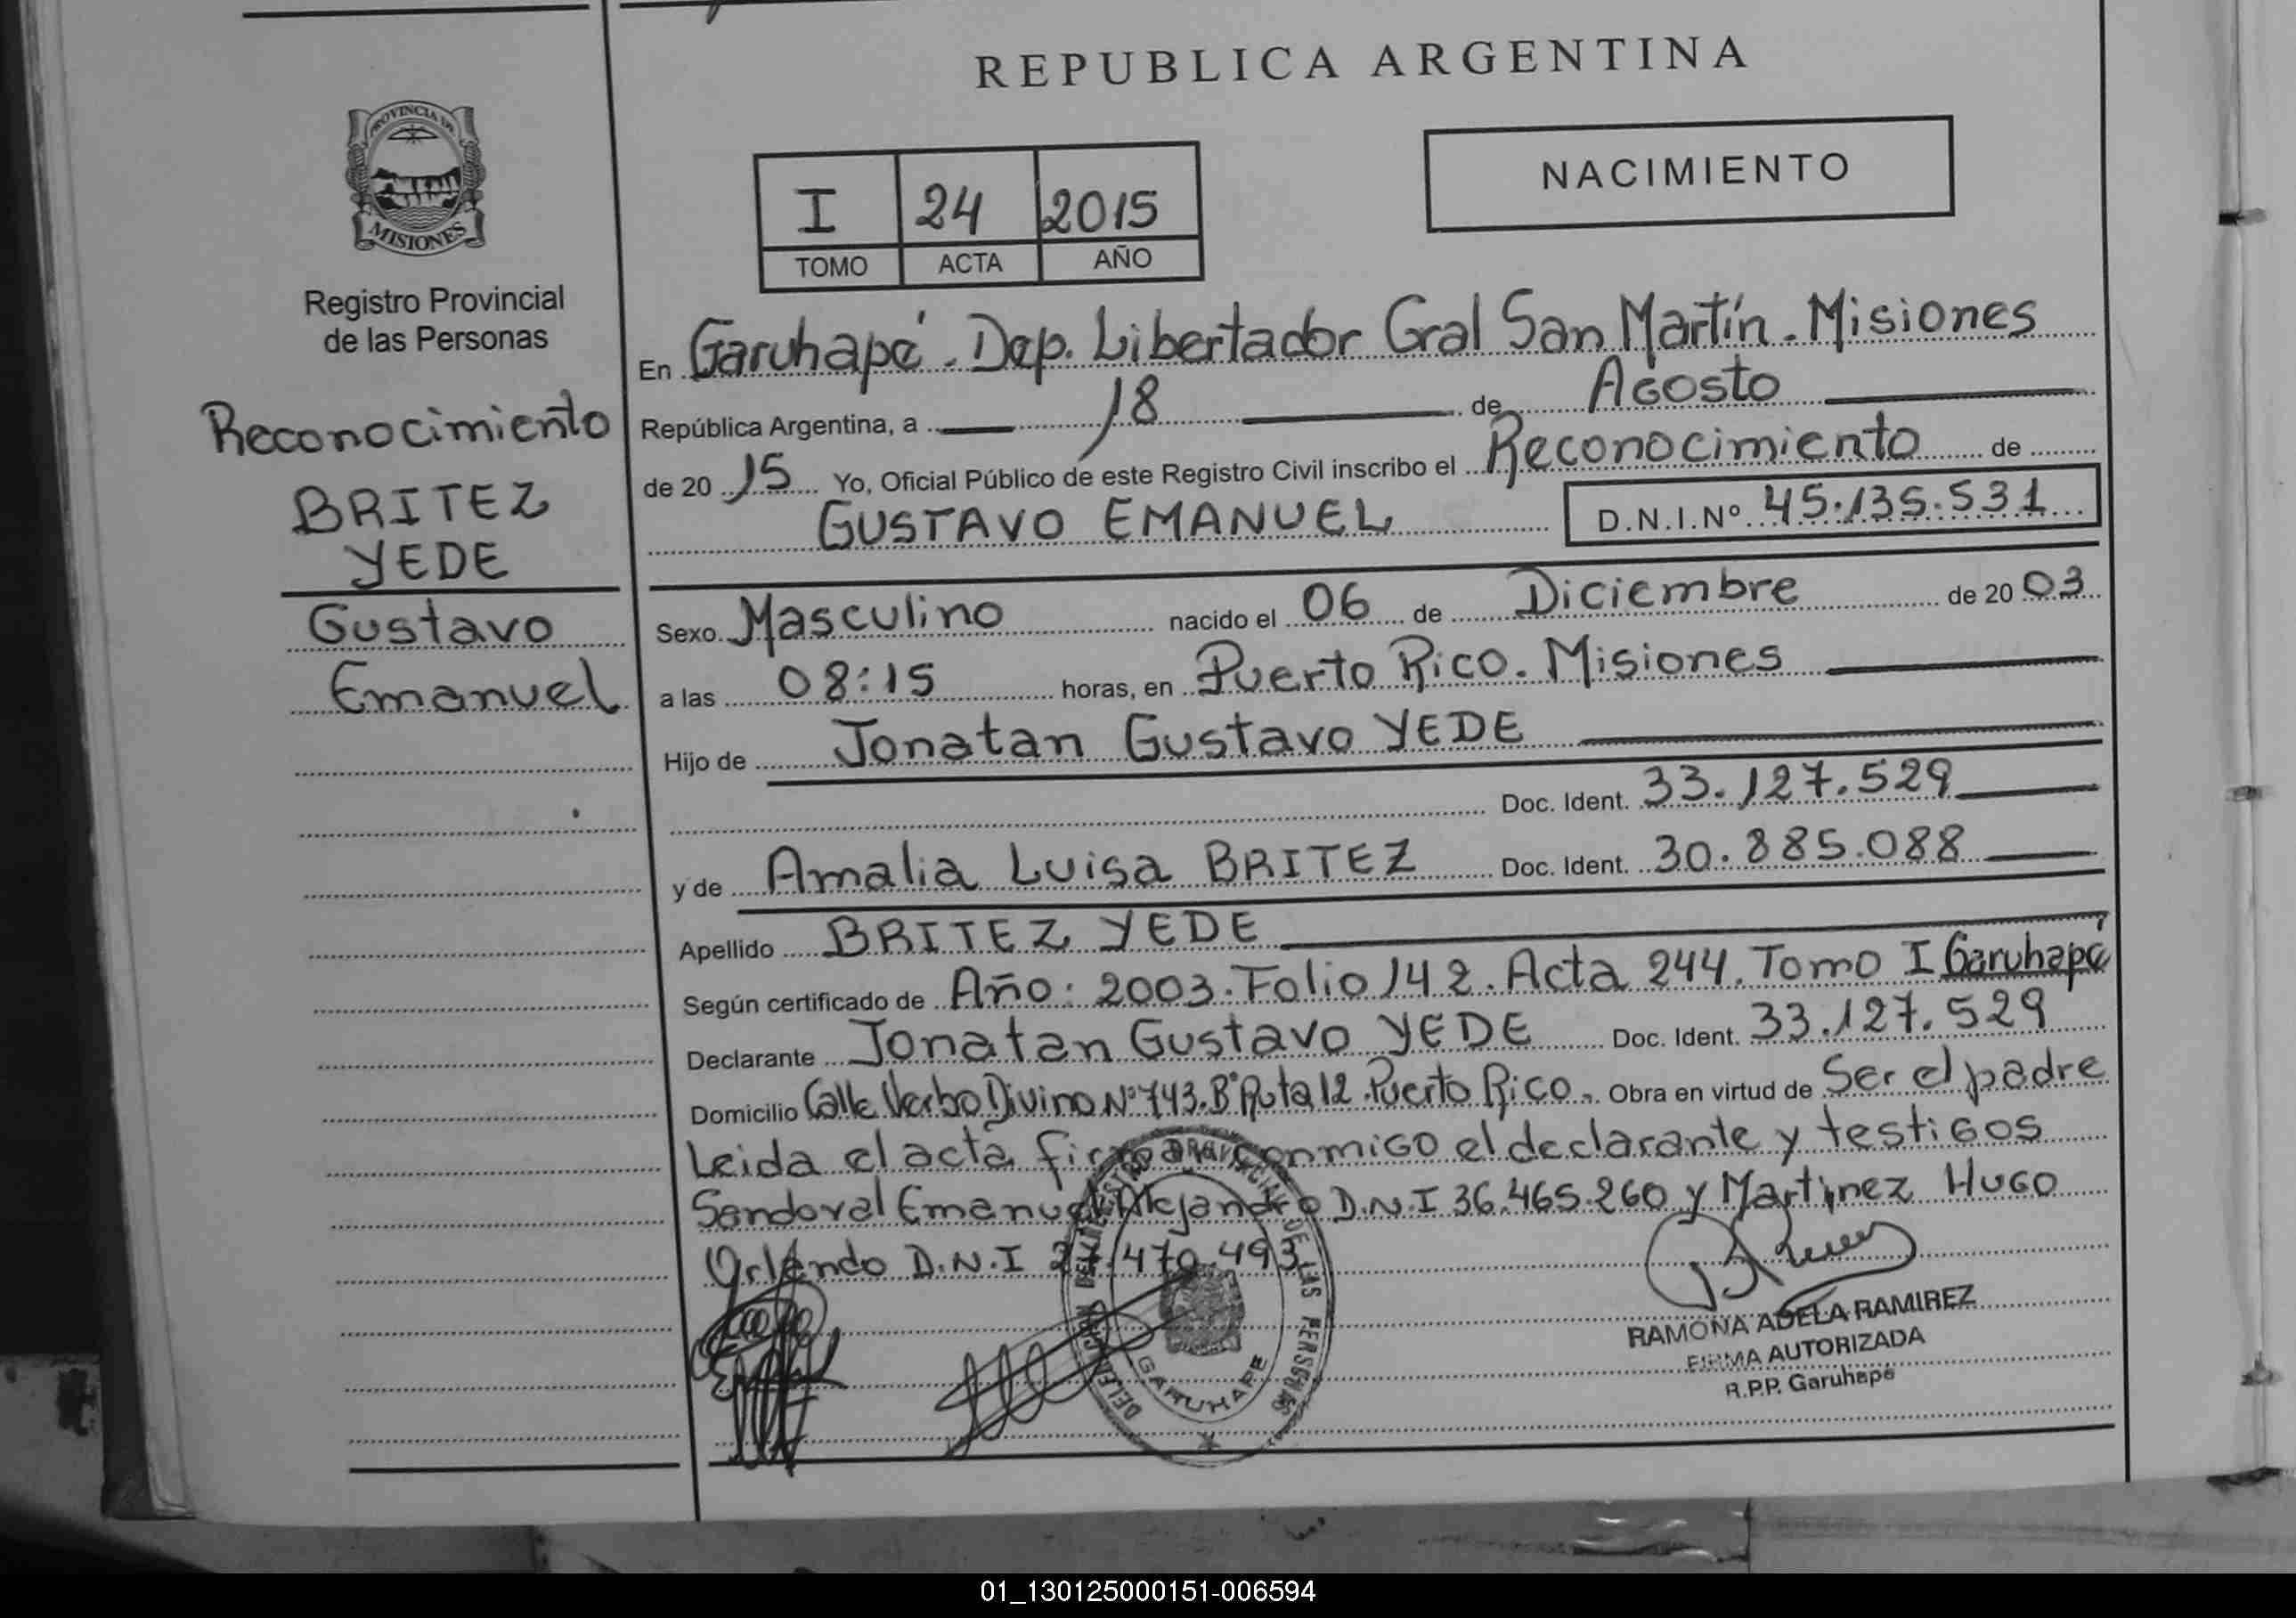 REPUBLICA ARGENTINA
PROVINCIA DE
MISIONES
Registro Provincial
de las Personas
Reconocimiento
BRITEZ
YEDE
Gustavo
Emanuel
NACIMIENTO
I 24 2015
TOMO ACTA AÑO
En Garuhapé. Dep. Libertador Gral San Martín. Misiones
República Argentina, a 18 de Agosto
de 20 15 Yo, Oficial Público de este Registro Civil inscribo el Reconocimiento de
GUSTAVO EMANUEL D.N.I.Nº 45.135.531
Sexo Masculino nacido el 06 de Diciembre de 20 03
a las 08:15 horas, en Puerto Rico. Misiones
Hijo de Jonatan Gustavo YEDE
Doc. Ident. 33.127.529
y de Amalia Luisa BRITEZ Doc. Ident. 30.885.088
Apellido BRITEZ YEDE
Según certificado de Año: 2003. Folio 142. Acta 244. Tomo I Garuhapé
Declarante Jonatan Gustavo YEDE Doc. Ident. 33.127.529
Domicilio Calle Verbo Divino Nº 743. Bº Ruta 12. Puerto Rico. Obra en virtud de Ser el padre
Leida el acta firman conmigo el declarante y testigos
Sandoval Emanuel Alejandro D.N.I 36.465.260 y Martinez Hugo
Orlando D.N.I 27.470.493
DELEGACION DEL REGISTRO PROVINCIAL DE LAS PERSONAS
GARUHAPE
RAMONA ADELA RAMIREZ
FIRMA AUTORIZADA
R.P.P. Garuhapé
01_130125000151-006594